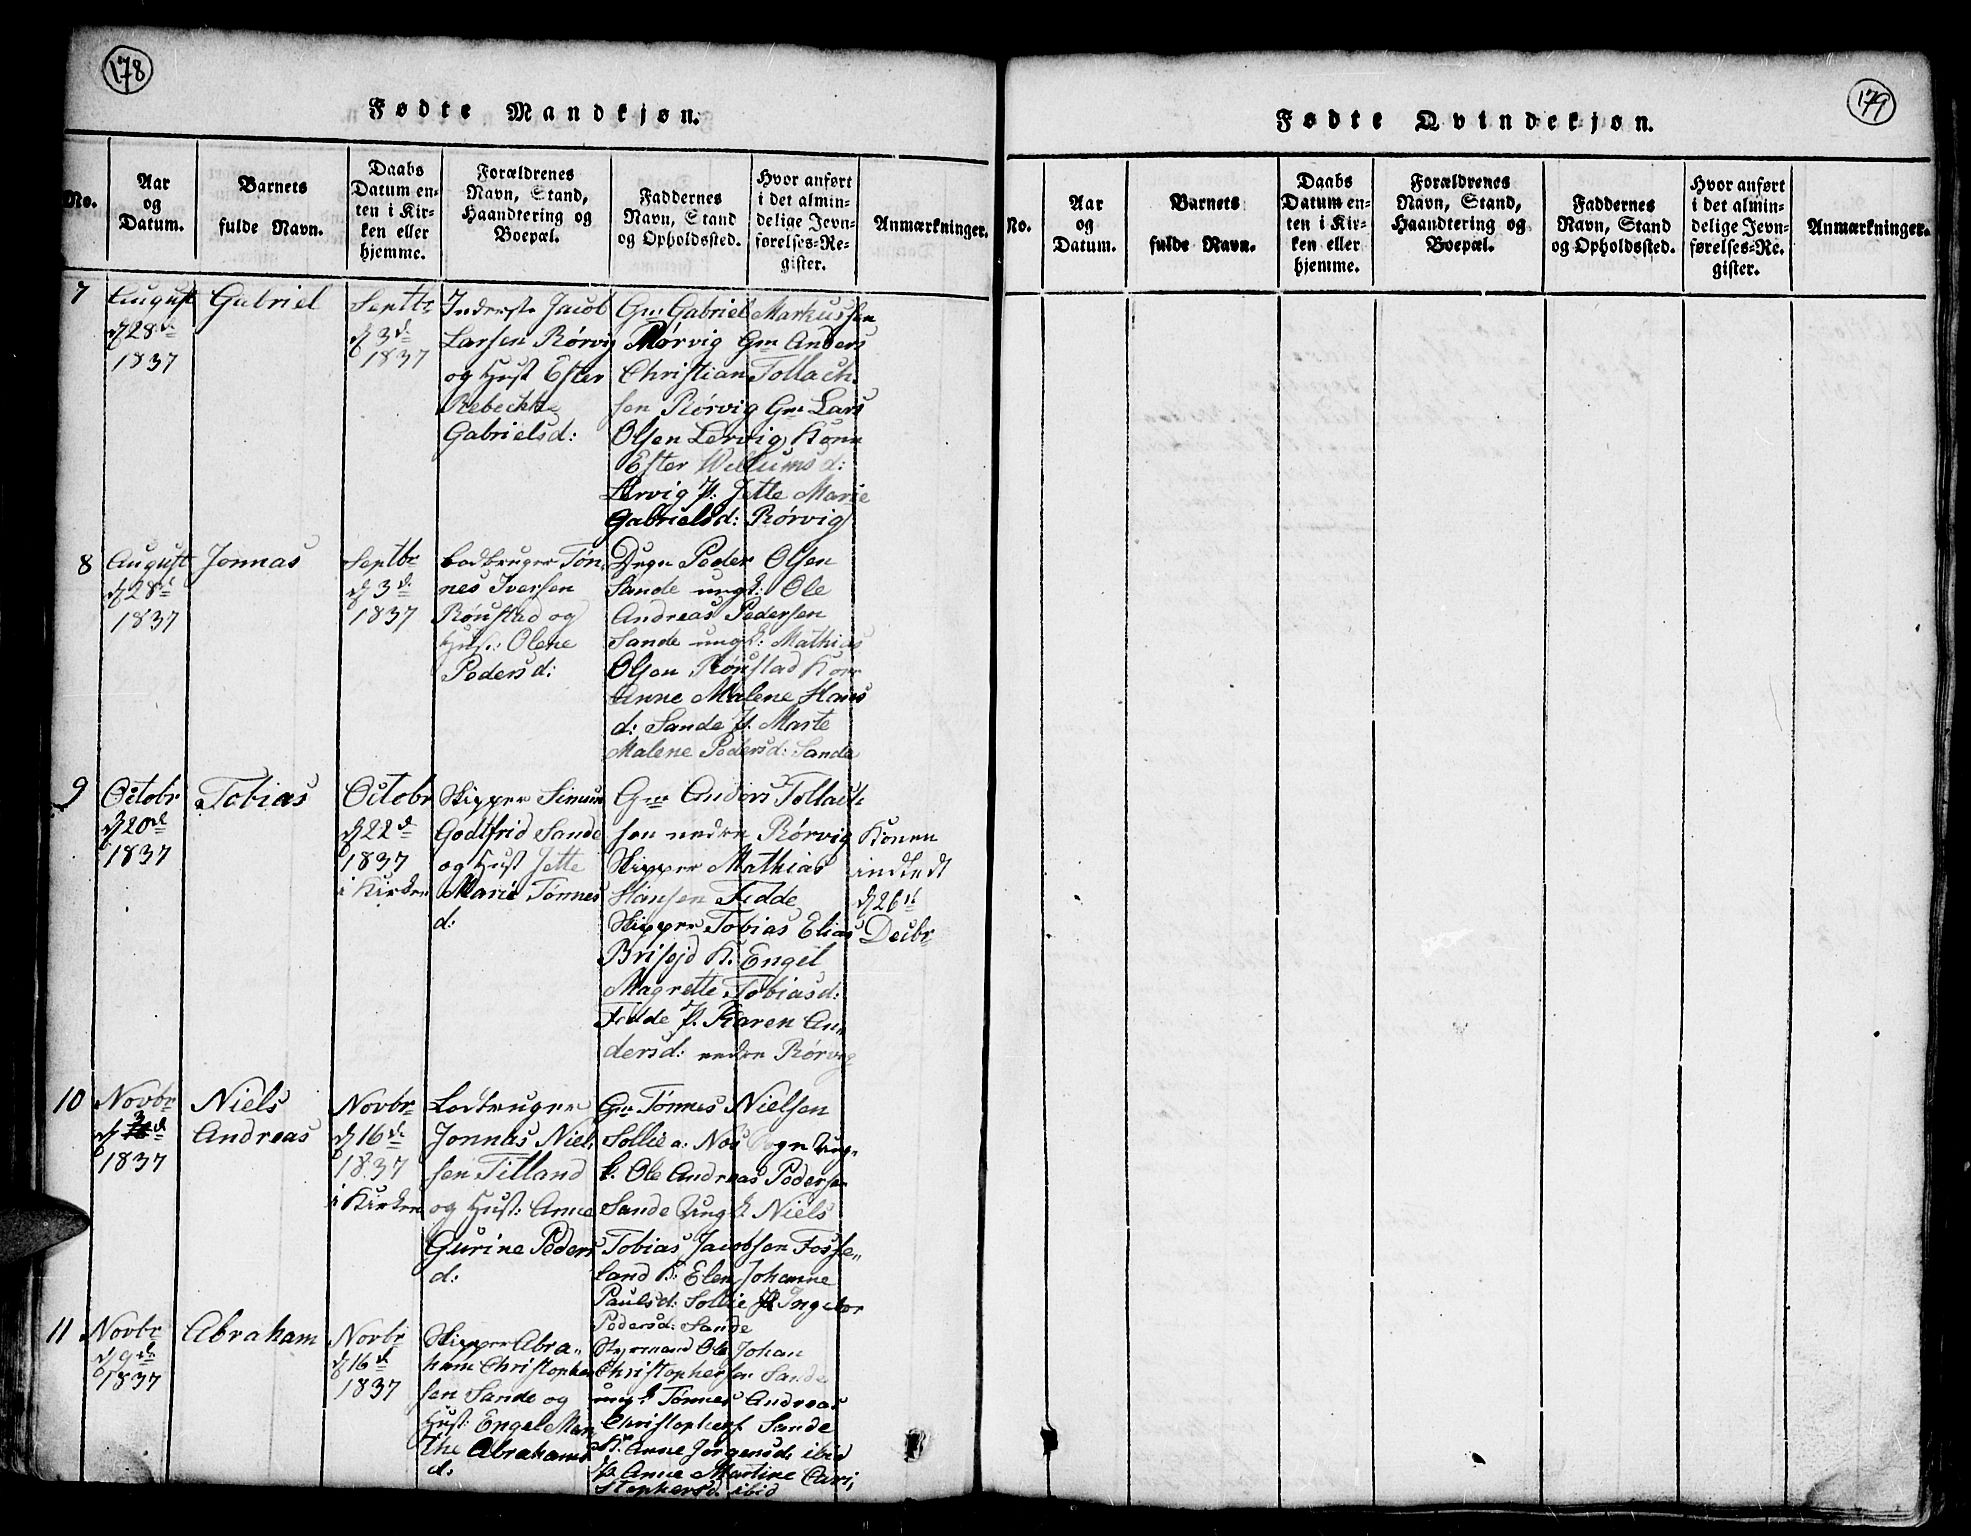 178
Fødte Mandkjøn.
No.
Aar
og
Datum.
Barnets
fulde Navn.
Daabs
Datum en-
ten i Kir-
ken eller
hjemme.
Forældrenes
Navn, Stand,
Haandtering og
Boepæl.
Faddernes
Navn, Stand
og Opholdssted.
Hvor anført
i det almin-
delige Jevn-
førelses-Re-
gister.
Anmærkninger.
7
August
d 28de
1837
Gabriel
Septbr
d 3d
1837
Inderste Jacob
Larsen Rørvig
og Hust Ester
Rebechke
Gabrielsd:
Gm Gabriel Markussen
Rørvig Gm Anders
Christian Tollach
sen Rørvig Gm Lars
Olsen Lervig Kone
Ester Willumsd:
Lervig P. Jette Marie
Gabrielsd: Rørvig
8
August
d 28d
1837
Jonnas
Septbr
d 3d
1837
Lodbruger Tøn
nes Iversen
Rønstad og
Hust: Olene
Pedersd:
Degn Peder Olsen
Sande ungk: Ole
Andreas Pedersen
Sande ungk: Mathias
Olsen Rønstad Kone
Anne Malene Hans
d: Sande P. Marte
Malene Pedersd: Sande
9
Octobr
d 20de
1837
Tobias
Octobr
d 22d
1837
i Kirken
Skipper Simon
Godtfrid Sande
og Hust Jette
Marie Tønnes
d:
Gm Anders Tollach
sen nedre Rørvig
Skipper Mathias
Hansen Fedde
Skipper Tobias Elias
Brisøjd K. Engel
Magrette Tobiasd:
Fedde P. Karen An
dersd: nedre Rørvig
Konen
indledt
d 26d
Decbr
10
Novbr
d 3d
1837
Niels
Andreas
Novbr
d 16d
1837
i Kirken
Lodbruger
Jonnas Niel
sen Titland
og Hust: Anne
Gurine Peders
d:
Gm Tønnes Nielsen
Sollie a: Nos Sogn Ung
k. Ole Andreas Peders
Sande Ungk Niels
Tobias Jacobsen Fosse
land K: Elen Johanne
Paulsd: Sollie P Ingebor
Pedersd: Sande
11
Novbr
d 9de
1837
Abraham
Novbr
d 16d
1837
Skipper Abra-
ham Christopher
sen Sande og
Hust: Engel Mar
the Abrahams
d:
Styrmand Ole Johan
Christophersen Sande
ungk Tønnes Andreas
Christophers Sande
K. Anne Jørgensd: ibid
P. Anne Martine Chri,
stophersd. ibid
179
Fødte Qvindekjøn.
No.
Aar
og
Datum.
Barnets
fulde Navn.
Daabs
Datum en-
ten i Kir-
ken eller
hjemme.
Forældrenes
Navn, Stand,
Haandtering og
Boepæl.
Faddernes
Navn, Stand
og Opholdssted.
Hvor anført
i det almin-
delige Jevn-
førelses-Re-
gister.
Anmærkninger.